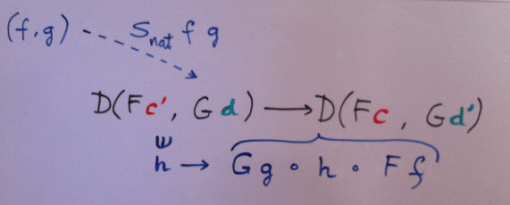 (f,g) S_nat f g
D(Fc', Gd) → D(Fc, Gd')
h → Gg ∘ h ∘ Ff